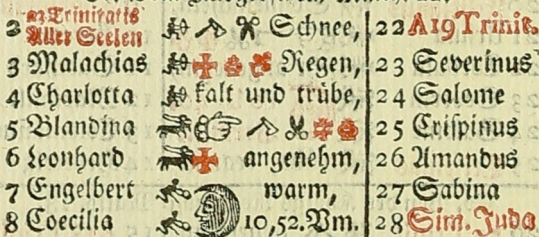 2 23 Trinitatis
Aller Seelen Schnee, 22 A19 Trinit.
3 Malachias Regen, 23 Severinus
4 Charlotta kalt und trübe, 24 Salome
5 Blandina 25 Crispinus
6 Leonhard angenehm, 26 Amandus
7 Engelbert warm, 27 Sabina
8 Coecilia 10,52.Vm. 28 Sim. Juda